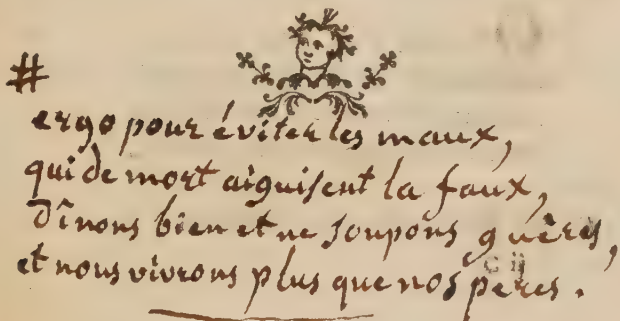 #
ergo pour éviter les maux,
qui de mort aiguisent la faux,
dînons bien et ne soupons guères,
et nous vivrons plus que nos peres.